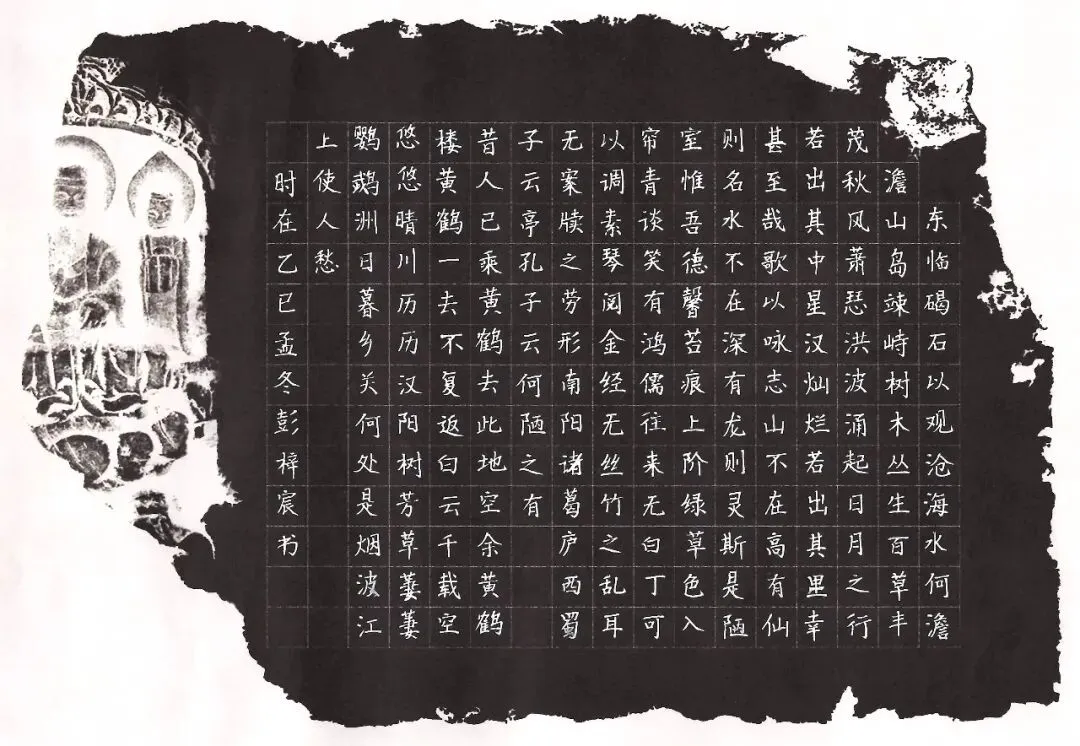 东临碣石以观沧海水何澹
澹山岛竦峙树木丛生百草丰
茂秋风萧瑟洪波涌起日月之行
若出其中星汉灿烂若出其里幸
甚至哉歌以咏志山不在高有仙
则名水不在深有龙则灵斯是陋
室惟吾德馨苔痕上阶绿草色入
帘青谈笑有鸿儒往来无白丁可
以调素琴阅金经无丝竹之乱耳
无案牍之劳形南阳诸葛庐西蜀
子云亭孔子云何陋之有
昔人已乘黄鹤去此地空余黄鹤
楼黄鹤一去不复返白云千载空
悠悠晴川历历汉阳树芳草萋萋
鹦鹉洲日暮乡关何处是烟波江
上使人愁
时在乙巳孟冬彭梓宸书